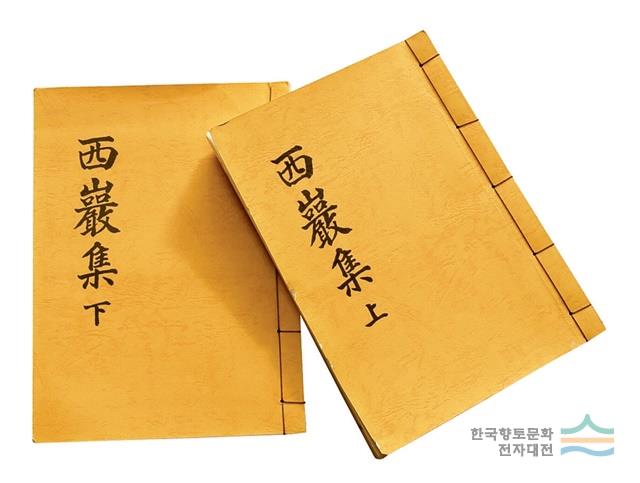 西巖集 下
西巖集 上
한국향토문화
전자대전